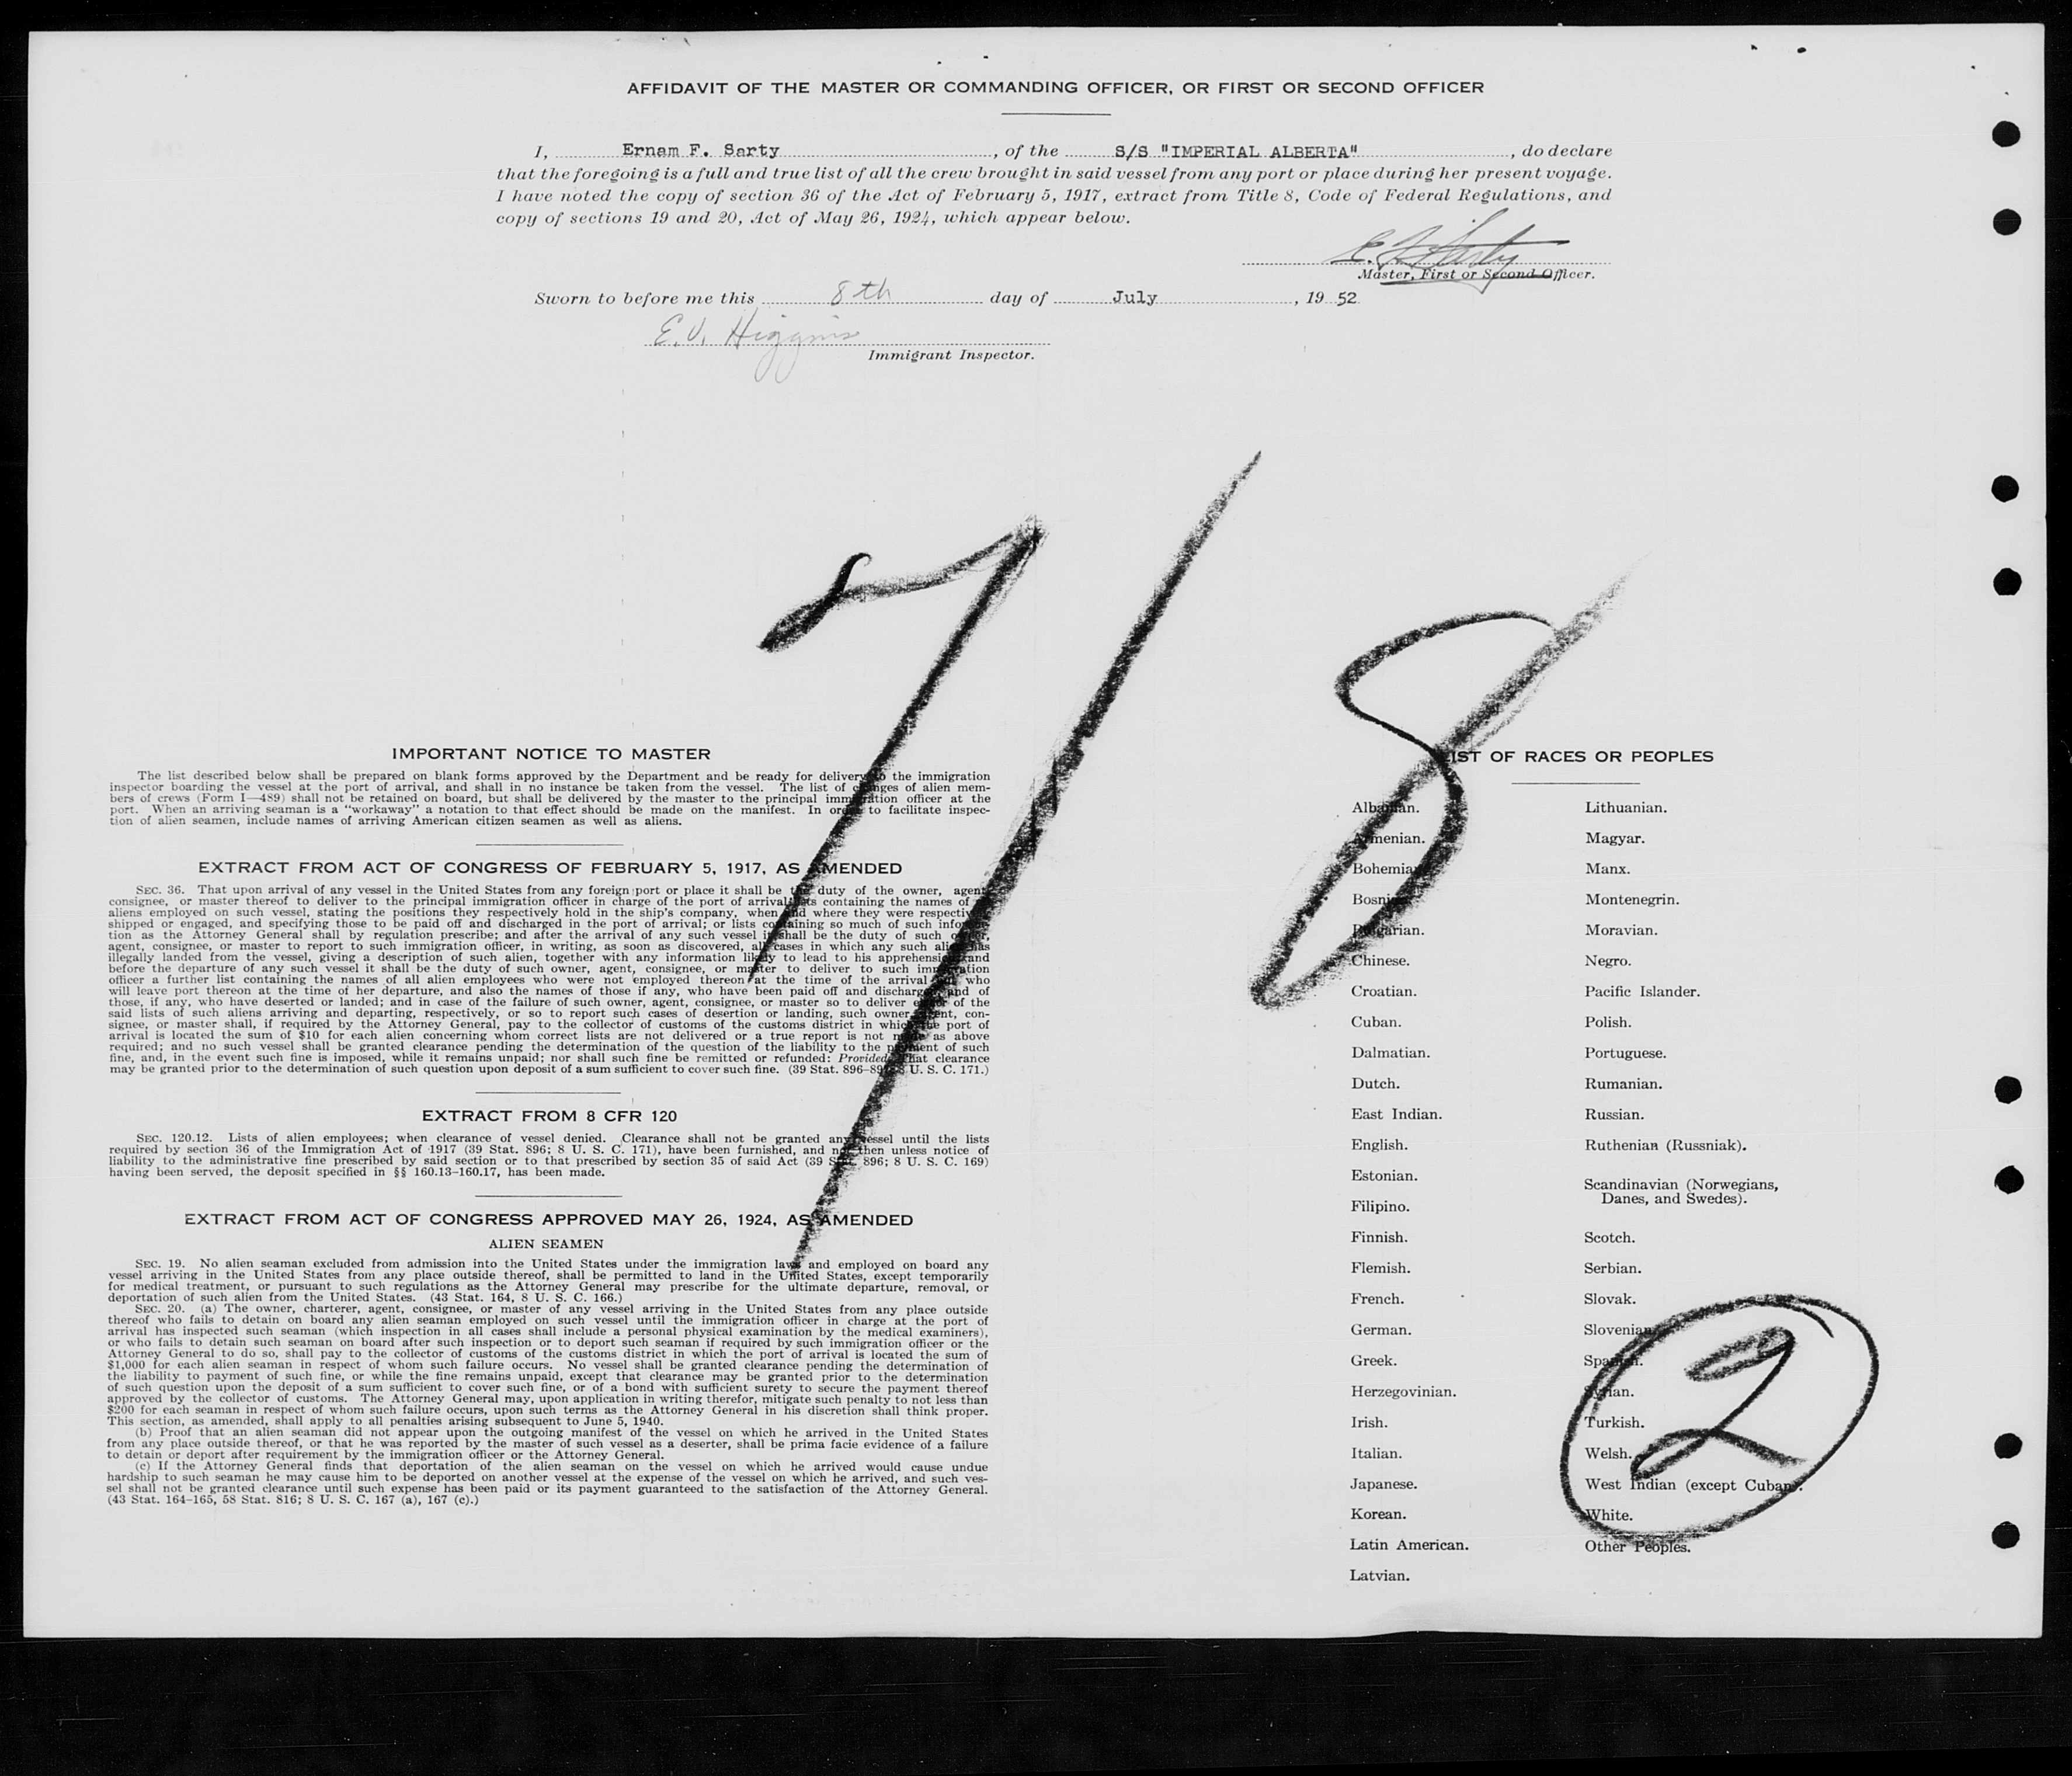 AFFIDAVIT OF THE MASTER OR COMMANDING OFFICER, OR FIRST OR SECOND OFFICER
I, Ernam F. Sarty, of the S/S "IMPERIAL ALBERTA", do declare
that the foregoing is a full and true list of all the crew brought in said vessel from any port or place during her present voyage.
I have noted the copy of section 36 of the Act of February 5, 1917, extract from Title 8, Code of Federal Regulations, and
copy of sections 19 and 20, Act of May 26, 1924, which appear below.
E. F. Sarty
Master, First or Second Officer.
Sworn to before me this 8th day of July, 19 52
E. V. Higgins
Immigrant Inspector.
7/8
IMPORTANT NOTICE TO MASTER
The list described below shall be prepared on blank forms approved by the Department and be ready for delivery to the immigration
inspector boarding the vessel at the port of arrival, and shall in no instance be taken from the vessel. The list of changes of alien mem-
bers of crews (Form I—489) shall not be retained on board, but shall be delivered by the master to the principal immigration officer at the
port. When an arriving seaman is a "workaway" a notation to that effect should be made on the manifest. In order to facilitate inspec-
tion of alien seamen, include names of arriving American citizen seamen as well as aliens.
EXTRACT FROM ACT OF CONGRESS OF FEBRUARY 5, 1917, AS AMENDED
SEC. 36. That upon arrival of any vessel in the United States from any foreign port or place it shall be the duty of the owner, agent,
consignee, or master thereof to deliver to the principal immigration officer in charge of the port of arrival lists containing the names of
aliens employed on such vessel, stating the positions they respectively hold in the ship's company, when and where they were respectively
shipped or engaged, and specifying those to be paid off and discharged in the port of arrival; or lists containing so much of such informa-
tion as the Attorney General shall by regulation prescribe; and after the arrival of any such vessel it shall be the duty of such owner,
agent, consignee, or master to report to such immigration officer, in writing, as soon as discovered, all cases in which any such alien has
illegally landed from the vessel, giving a description of such alien, together with any information likely to lead to his apprehension; and
before the departure of any such vessel it shall be the duty of such owner, agent, consignee, or master to deliver to such immigration
officer a further list containing the names of all alien employees who were not employed thereon at the time of the arrival but who
will leave port thereon at the time of her departure, and also the names of those if any, who have been paid off and discharged, and of
those, if any, who have deserted or landed; and in case of the failure of such owner, agent, consignee, or master so to deliver either of the
said lists of such aliens arriving and departing, respectively, or so to report such cases of desertion or landing, such owner, agent, con-
signee, or master shall, if required by the Attorney General, pay to the collector of customs of the customs district in which the port of
arrival is located the sum of $10 for each alien concerning whom correct lists are not delivered or a true report is not made as above
required; and no such vessel shall be granted clearance pending the determination of the question of the liability to the payment of such
fine, and, in the event such fine is imposed, while it remains unpaid; nor shall such fine be remitted or refunded: Provided, That clearance
may be granted prior to the determination of such question upon deposit of a sum sufficient to cover such fine. (39 Stat. 896–897; 8 U. S. C. 171.)
EXTRACT FROM 8 CFR 120
SEC. 120.12. Lists of alien employees; when clearance of vessel denied. Clearance shall not be granted any vessel until the lists
required by section 36 of the Immigration Act of 1917 (39 Stat. 896; 8 U. S. C. 171), have been furnished, and not then unless notice of
liability to the administrative fine prescribed by said section or to that prescribed by section 35 of said Act (39 Stat. 896; 8 U. S. C. 169)
having been served, the deposit specified in §§ 160.13–160.17, has been made.
EXTRACT FROM ACT OF CONGRESS APPROVED MAY 26, 1924, AS AMENDED
ALIEN SEAMEN
SEC. 19. No alien seaman excluded from admission into the United States under the immigration laws and employed on board any
vessel arriving in the United States from any place outside thereof, shall be permitted to land in the United States, except temporarily
for medical treatment, or pursuant to such regulations as the Attorney General may prescribe for the ultimate departure, removal, or
deportation of such alien from the United States. (43 Stat. 164, 8 U. S. C. 166.)
SEC. 20. (a) The owner, charterer, agent, consignee, or master of any vessel arriving in the United States from any place outside
thereof who fails to detain on board any alien seaman employed on such vessel until the immigration officer in charge at the port of
arrival has inspected such seaman (which inspection in all cases shall include a personal physical examination by the medical examiners),
or who fails to detain such seaman on board after such inspection or to deport such seaman if required by such immigration officer or the
Attorney General to do so, shall pay to the collector of customs of the customs district in which the port of arrival is located the sum of
$1,000 for each alien seaman in respect of whom such failure occurs. No vessel shall be granted clearance pending the determination of
the liability to payment of such fine, or while the fine remains unpaid, except that clearance may be granted prior to the determination
of such question upon the deposit of a sum sufficient to cover such fine, or of a bond with sufficient surety to secure the payment thereof
approved by the collector of customs. The Attorney General may, upon application in writing therefor, mitigate such penalty to not less than
$200 for each seaman in respect of whom such failure occurs, upon such terms as the Attorney General in his discretion shall think proper.
This section, as amended, shall apply to all penalties arising subsequent to June 5, 1940.
(b) Proof that an alien seaman did not appear upon the outgoing manifest of the vessel on which he arrived in the United States
from any place outside thereof, or that he was reported by the master of such vessel as a deserter, shall be prima facie evidence of a failure
to detain or deport after requirement by the immigration officer or the Attorney General.
(c) If the Attorney General finds that deportation of the alien seaman on the vessel on which he arrived would cause undue
hardship to such seaman he may cause him to be deported on another vessel at the expense of the vessel on which he arrived, and such ves-
sel shall not be granted clearance until such expense has been paid or its payment guaranteed to the satisfaction of the Attorney General.
(43 Stat. 164–165, 58 Stat. 816; 8 U. S. C. 167 (a), 167 (c).)
LIST OF RACES OR PEOPLES
Albanian.
Armenian.
Bohemian.
Bosnian.
Bulgarian.
Chinese.
Croatian.
Cuban.
Dalmatian.
Dutch.
East Indian.
English.
Estonian.
Filipino.
Finnish.
Flemish.
French.
German.
Greek.
Herzegovinian.
Irish.
Italian.
Japanese.
Korean.
Latin American.
Latvian.
Lithuanian.
Magyar.
Manx.
Montenegrin.
Moravian.
Negro.
Pacific Islander.
Polish.
Portuguese.
Rumanian.
Russian.
Ruthenian (Russniak).
Scandinavian (Norwegians,
Danes, and Swedes).
Scotch.
Serbian.
Slovak.
Slovenian.
Spanish.
Syrian.
Turkish.
Welsh.
West Indian (except Cuban).
White.
Other Peoples.
2